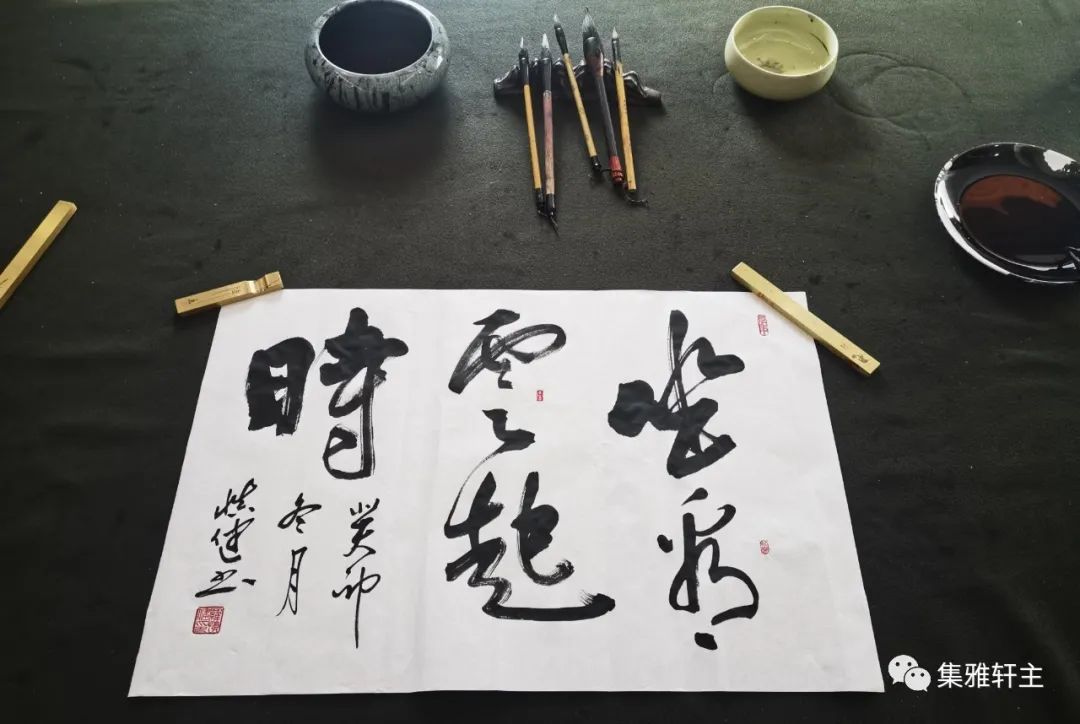 坐看
雲起
時
癸卯
冬月
慎健书
集雅轩主